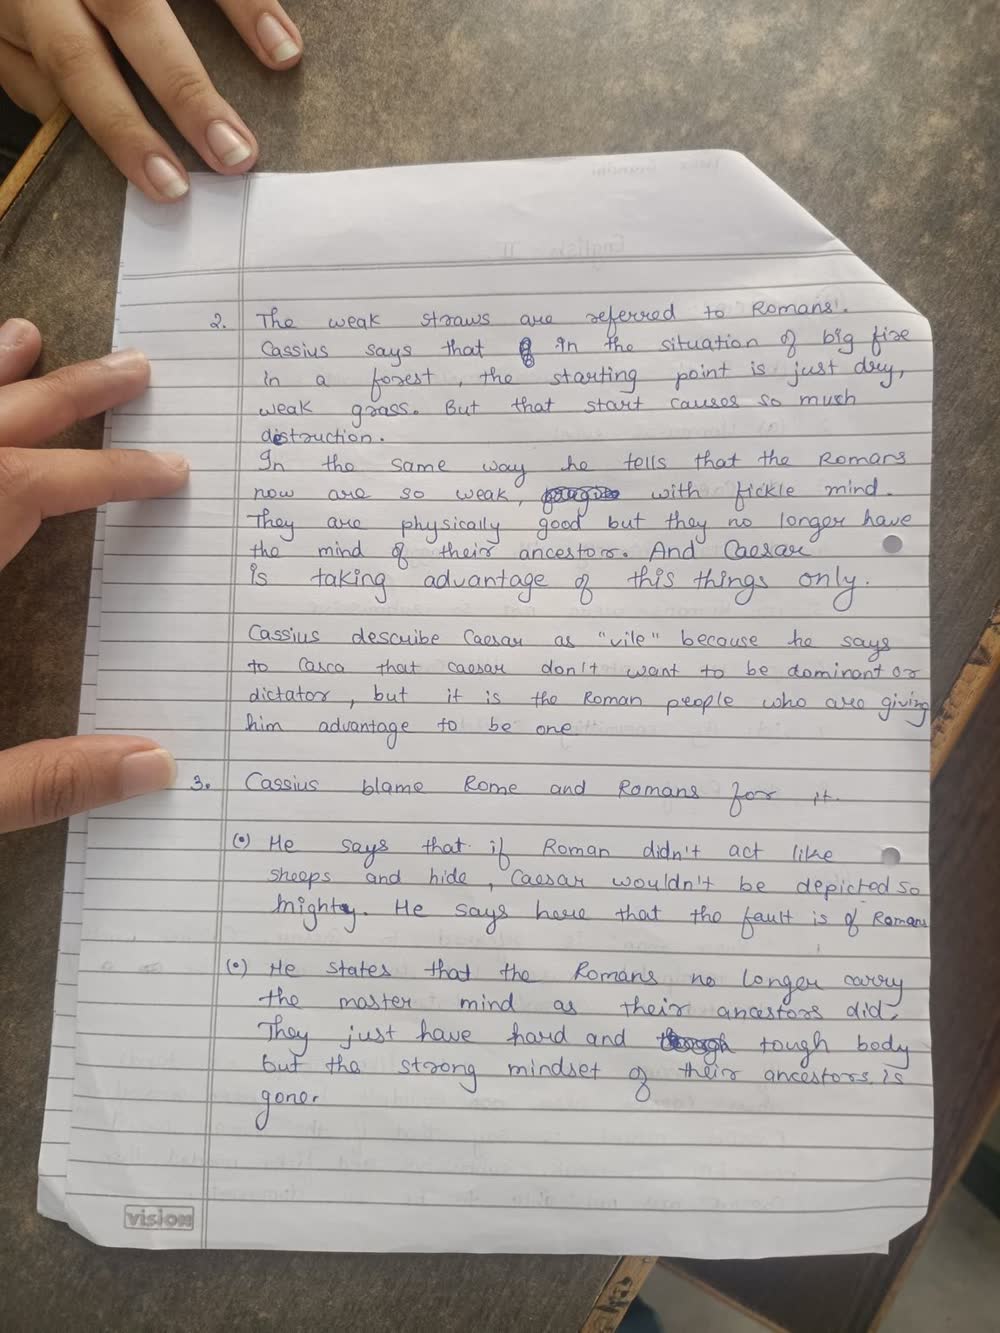 2. The weak straws are referred to Romans.
Cassius says that in the situation of big fire
in a forest, the starting point is just dry,
weak grass. But that start causes so much
destruction.
In the same way he tells that the Romans
now are so weak, with fickle mind.
They are physically good but they no longer have
the mind of their ancestor. And Caesar
is taking advantage of this things only.
Cassius describe Caesar as "vile" because he says
to Casca that caesar don't want to be dominant or
dictator, but it is the Roman people who are giving
him advantage to be one
3. Cassius blame Rome and Romans for it.
(•) He says that if Roman didn't act like
sheeps and hide, Caesar wouldn't be depicted so
mighty. He says here that the fault is of Romans
(•) He states that the Romans no longer carry
the master mind as their ancestors did.
They just have hard and tough body
but the strong mindset of their ancestors is
gone.
vision